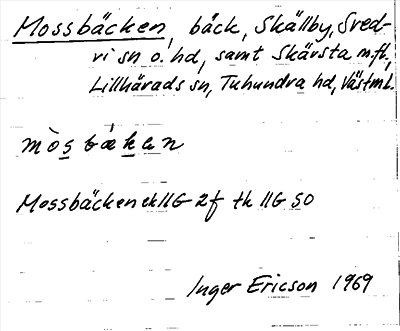 Mossbäcken, bäck, Skällby, Sved-
vi sn o. hd, samt Skärsta m.fl.,
Lillhärads sn, Tuhundra hd, Västml.
mòsbákan
Mossbäcken ek 11G 2f tk 11G SO
Inger Ericson 1969